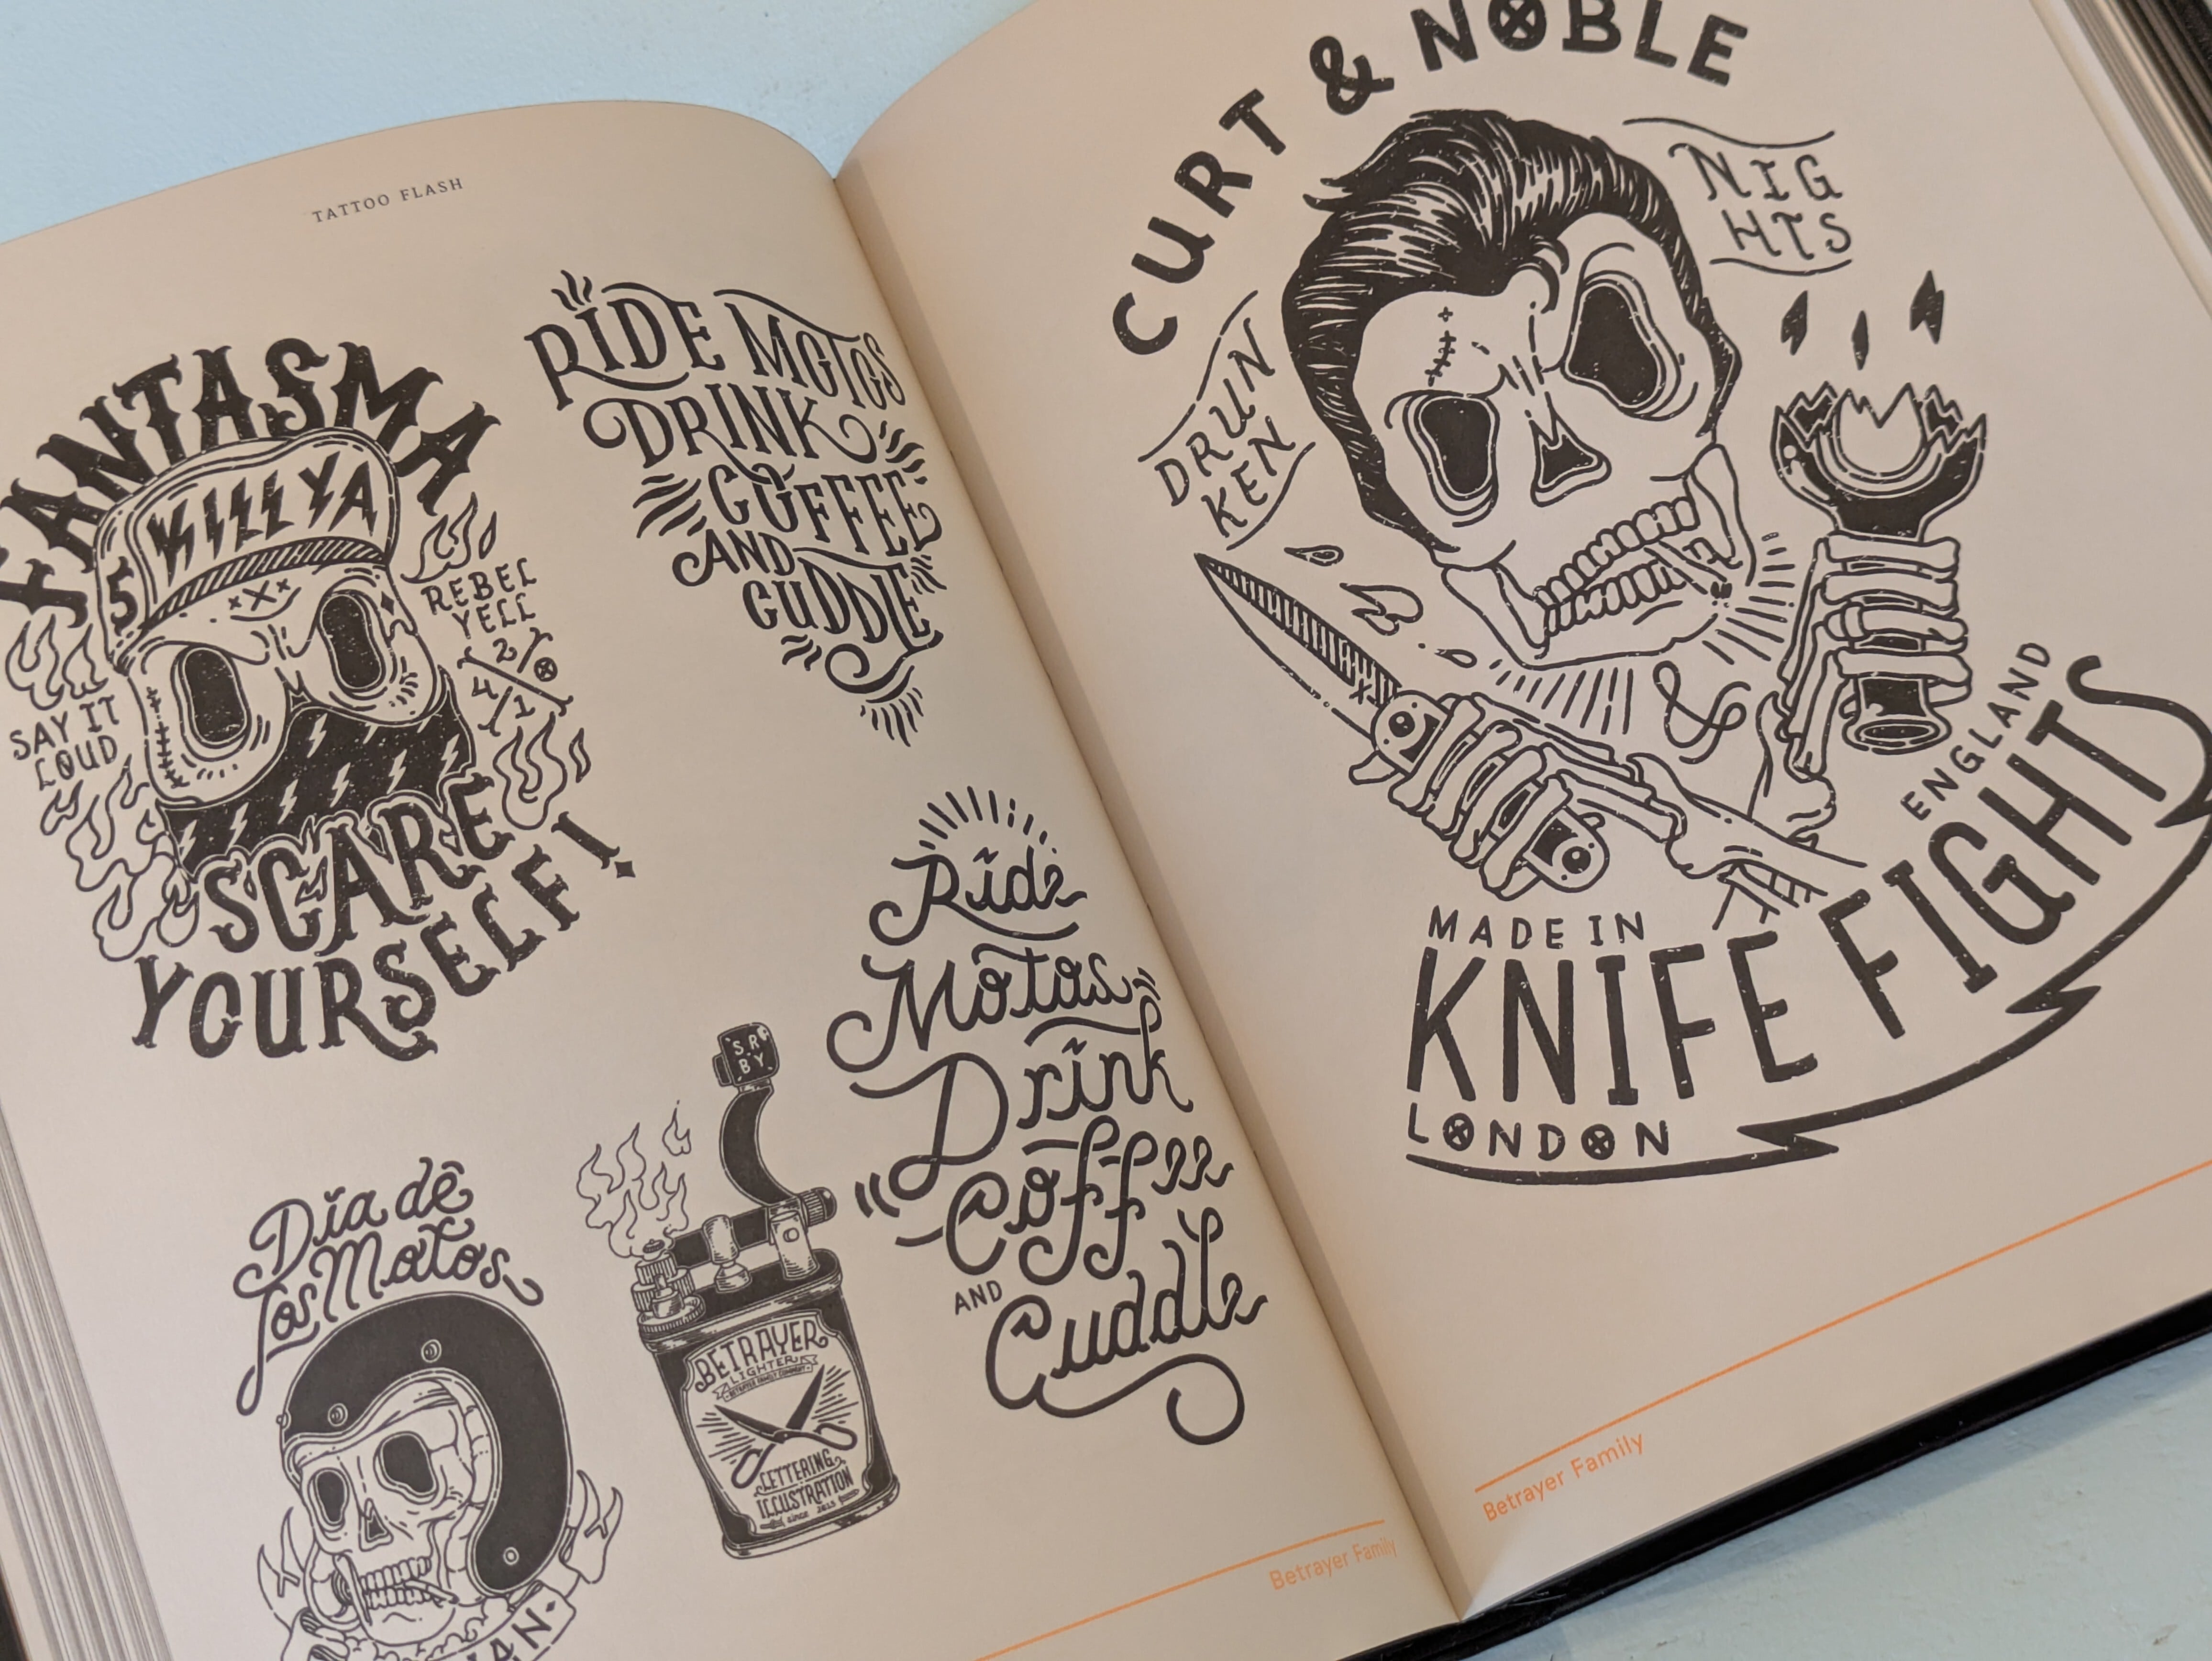 TATTOO FLASH
FANTASMA
5 WILL YA
REBEL
YELL
2/⊗
4/1
SAY IT
LOUD
SCARE
YOURSELF!
RIDE MOTOS
DRINK
COFFEE
AND
CUDDLE
Ride
Motos
Drink
Coffee
AND
Cuddle
Día de
los Motos
S.R
B.Y
BETRAYER
LIGHTER
BETRAYER FAMILY COMPANY
LETTERING
ILLUSTRATION
since 2013
Betrayer Family
CURT & NOBLE
NIG
HTS
DRUN
KEN
&
MADE IN
ENGLAND
KNIFE FIGHTS
LONDON
Betrayer Family